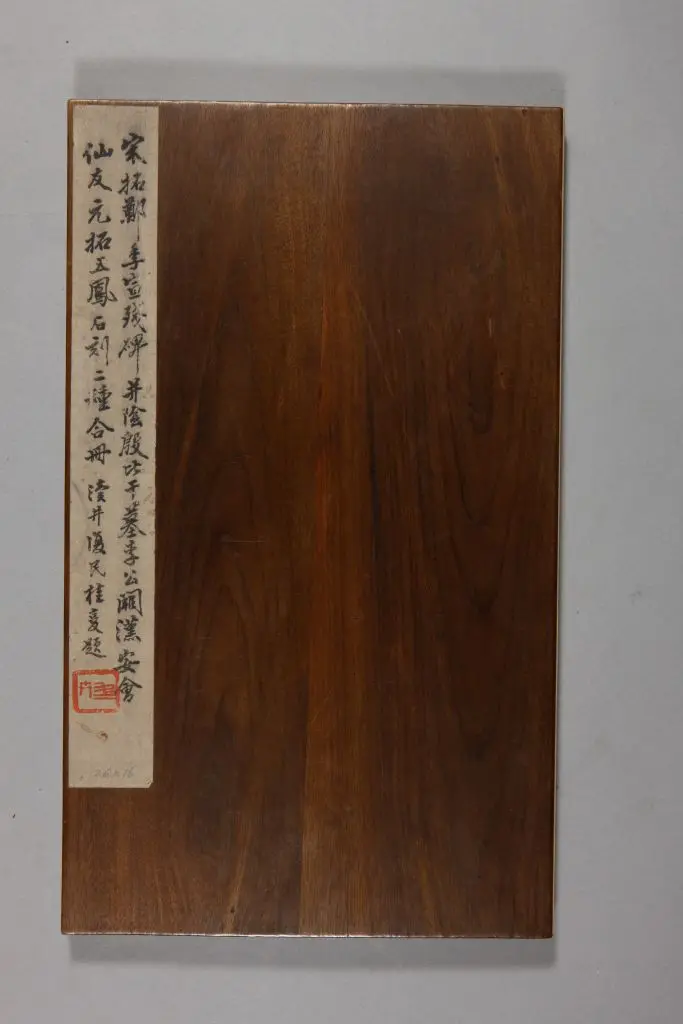 宋拓鄭季宣殘碑并陰殷比干墓李公闕漢安會
仙友元拓五鳳石刻二種合冊 淩井復民桂受題